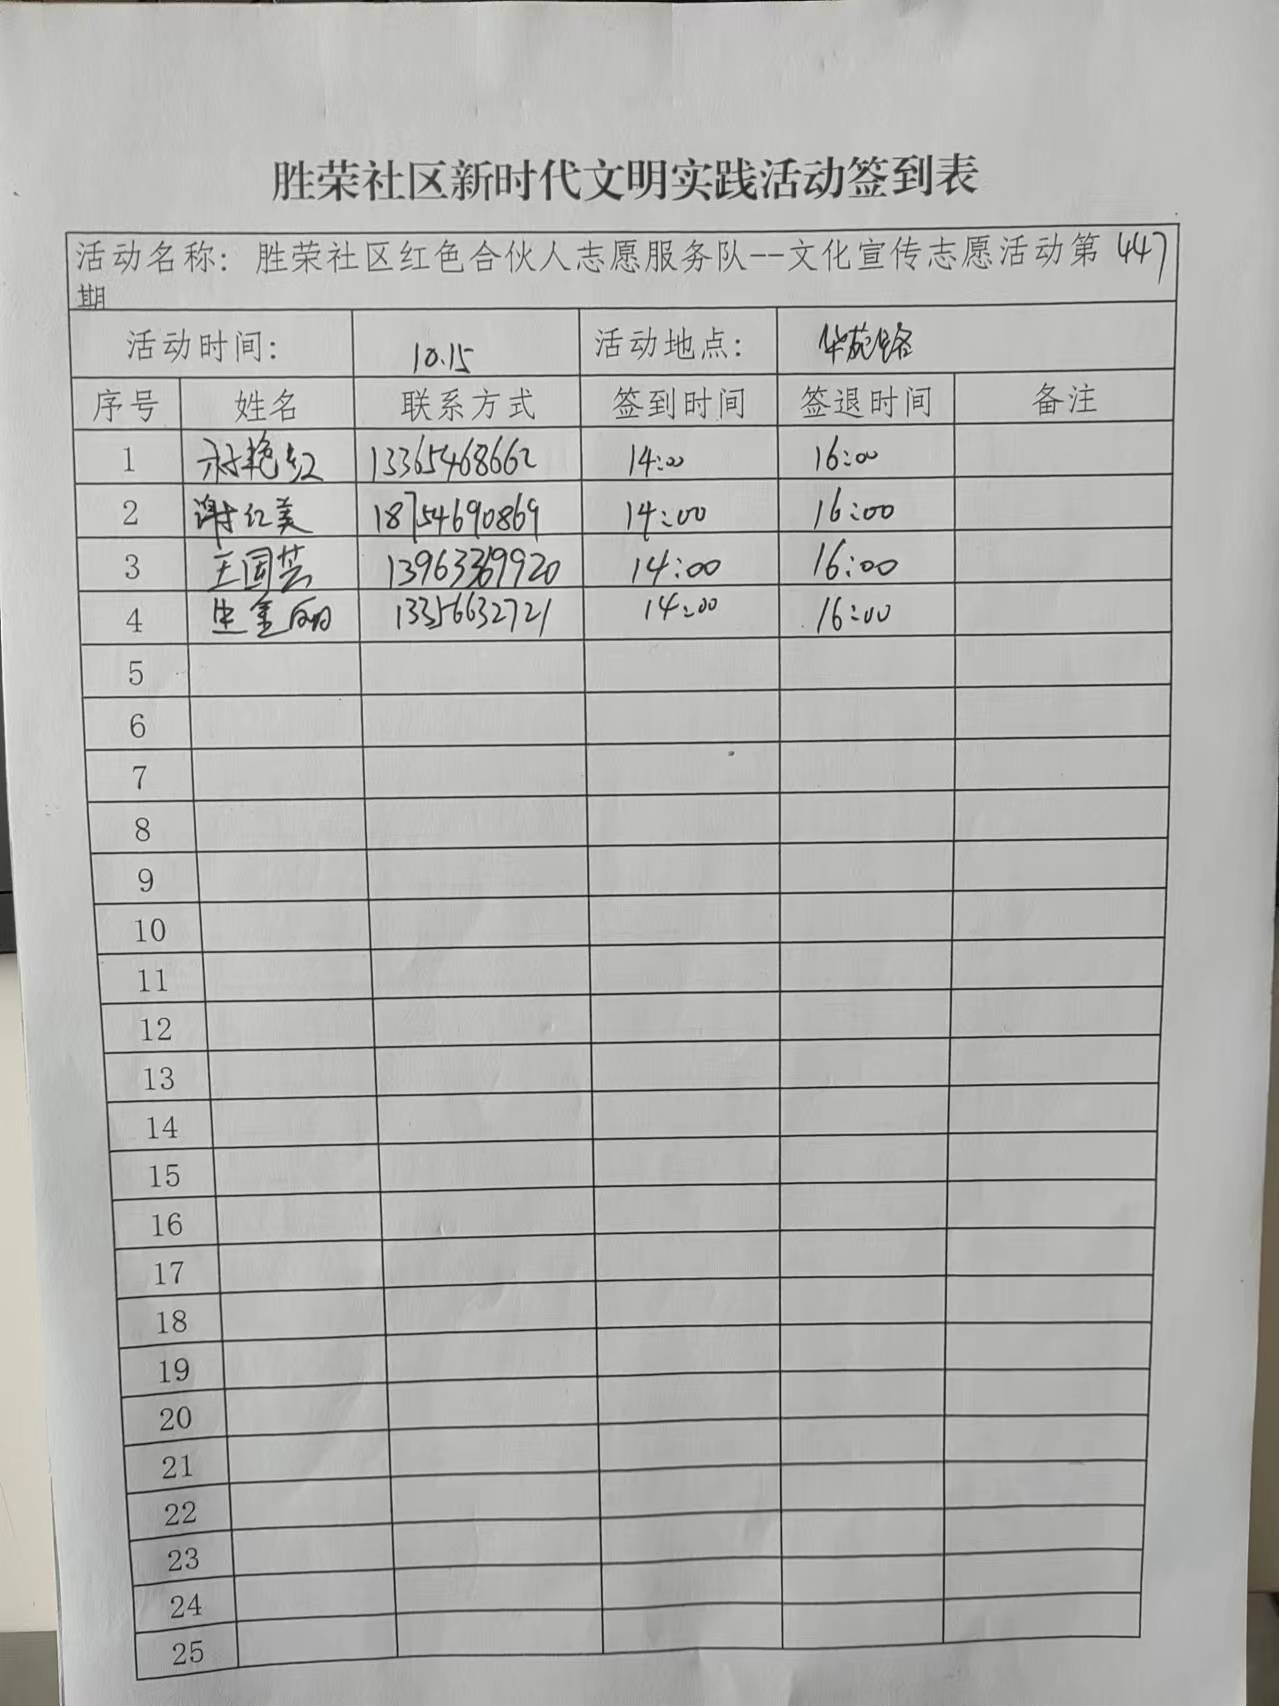 胜荣社区新时代文明实践活动签到表
活动名称：胜荣社区红色合伙人志愿服务队--文化宣传志愿活动第447
期
活动时间： 10.15 活动地点： 华苑路
序号 姓名 联系方式 签到时间 签退时间 备注
1 艳红 13365468662 14:00 16:00
2 谢红美 18754690869 14:00 16:00
3 王国芸 13963369920 14:00 16:00
4 金丽 13356632721 14:00 16:00
5
6
7
8
9
10
11
12
13
14
15
16
17
18
19
20
21
22
23
24
25